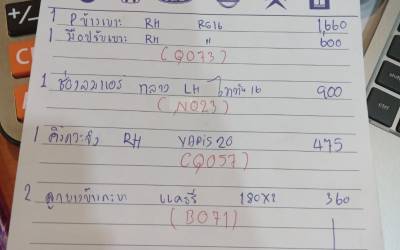 1 P ข้างเบาะ RH RG16 1,660
1 มือปรับเบาะ RH " 600
(Q073)
1 ช่องลมแอร์ กลาง LH ไททัน 16 900
(N023)
1 คิ้วกระจัง RH YARIS 20 475
(Q057)
2 ลูกยางข้างกะบะ แครรี่ 180x2 360
(B071)